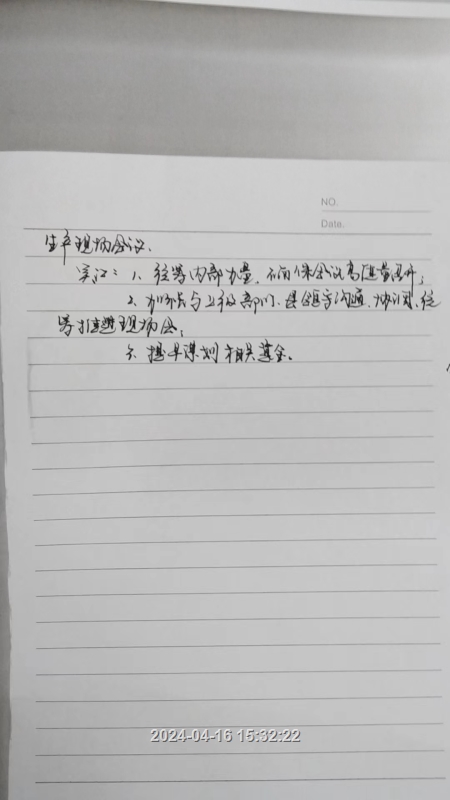 NO.
Date.
生产现场会议.
1. 统筹内部力量, 会议高质量召开;
2. 加强与上级部门、县领导沟通、协调, 统
筹推进现场会;
3. 提早谋划相关基金.
2024-04-16 15:32:22